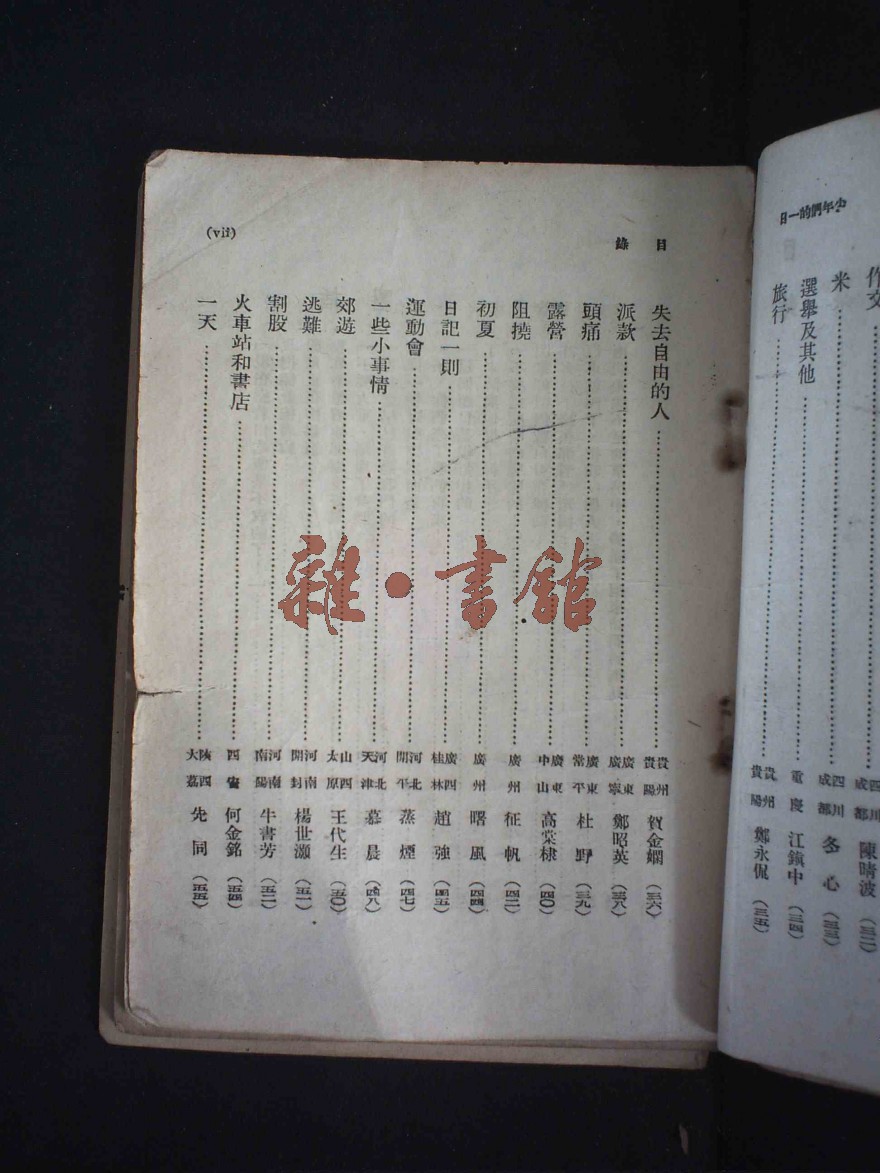 少年們的一日
作文 四川成都 陳晴波 (三二)
米 四川成都 冬心 (三三)
選舉及其他 重慶 江鎮中 (三四)
旅行 貴州貴陽 鄭永侃 (三五)
目錄
(vii)
失去自由的人 貴州貴陽 賀金 (三六)
派款 廣東廣寧 鄭昭英 (三八)
頭痛 廣東常平 杜野 (三九)
露營 廣東中山 高棠棣 (四〇)
阻撓 廣州 征帆 (四二)
初夏 廣州 曙風 (四四)
日記一則 廣西桂林 趙強 (四五)
運動會 河北開平 蒸煙 (四七)
一些小事情 河北天津 慕晨 (四八)
郊遊 山西太原 王代生 (五〇)
逃難 河南開封 楊世灝 (五一)
割股 河南南陽 牛書芳 (五二)
火車站和書店 西安 何金銘 (五四)
一天 陝西大荔 先同 (五五)
雜·書館